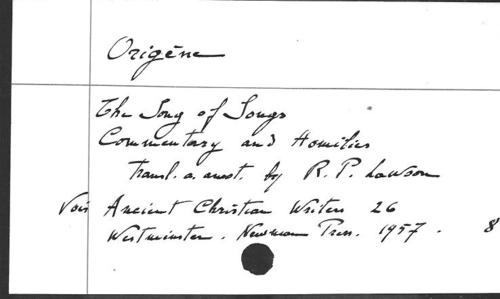 Origène
The Song of Songs
Commentary and Homilies
transl. a. annot. by R. P. Lawson
Voir Ancient Christian Writers 26
Westminster. Newman Press. 1957. 8